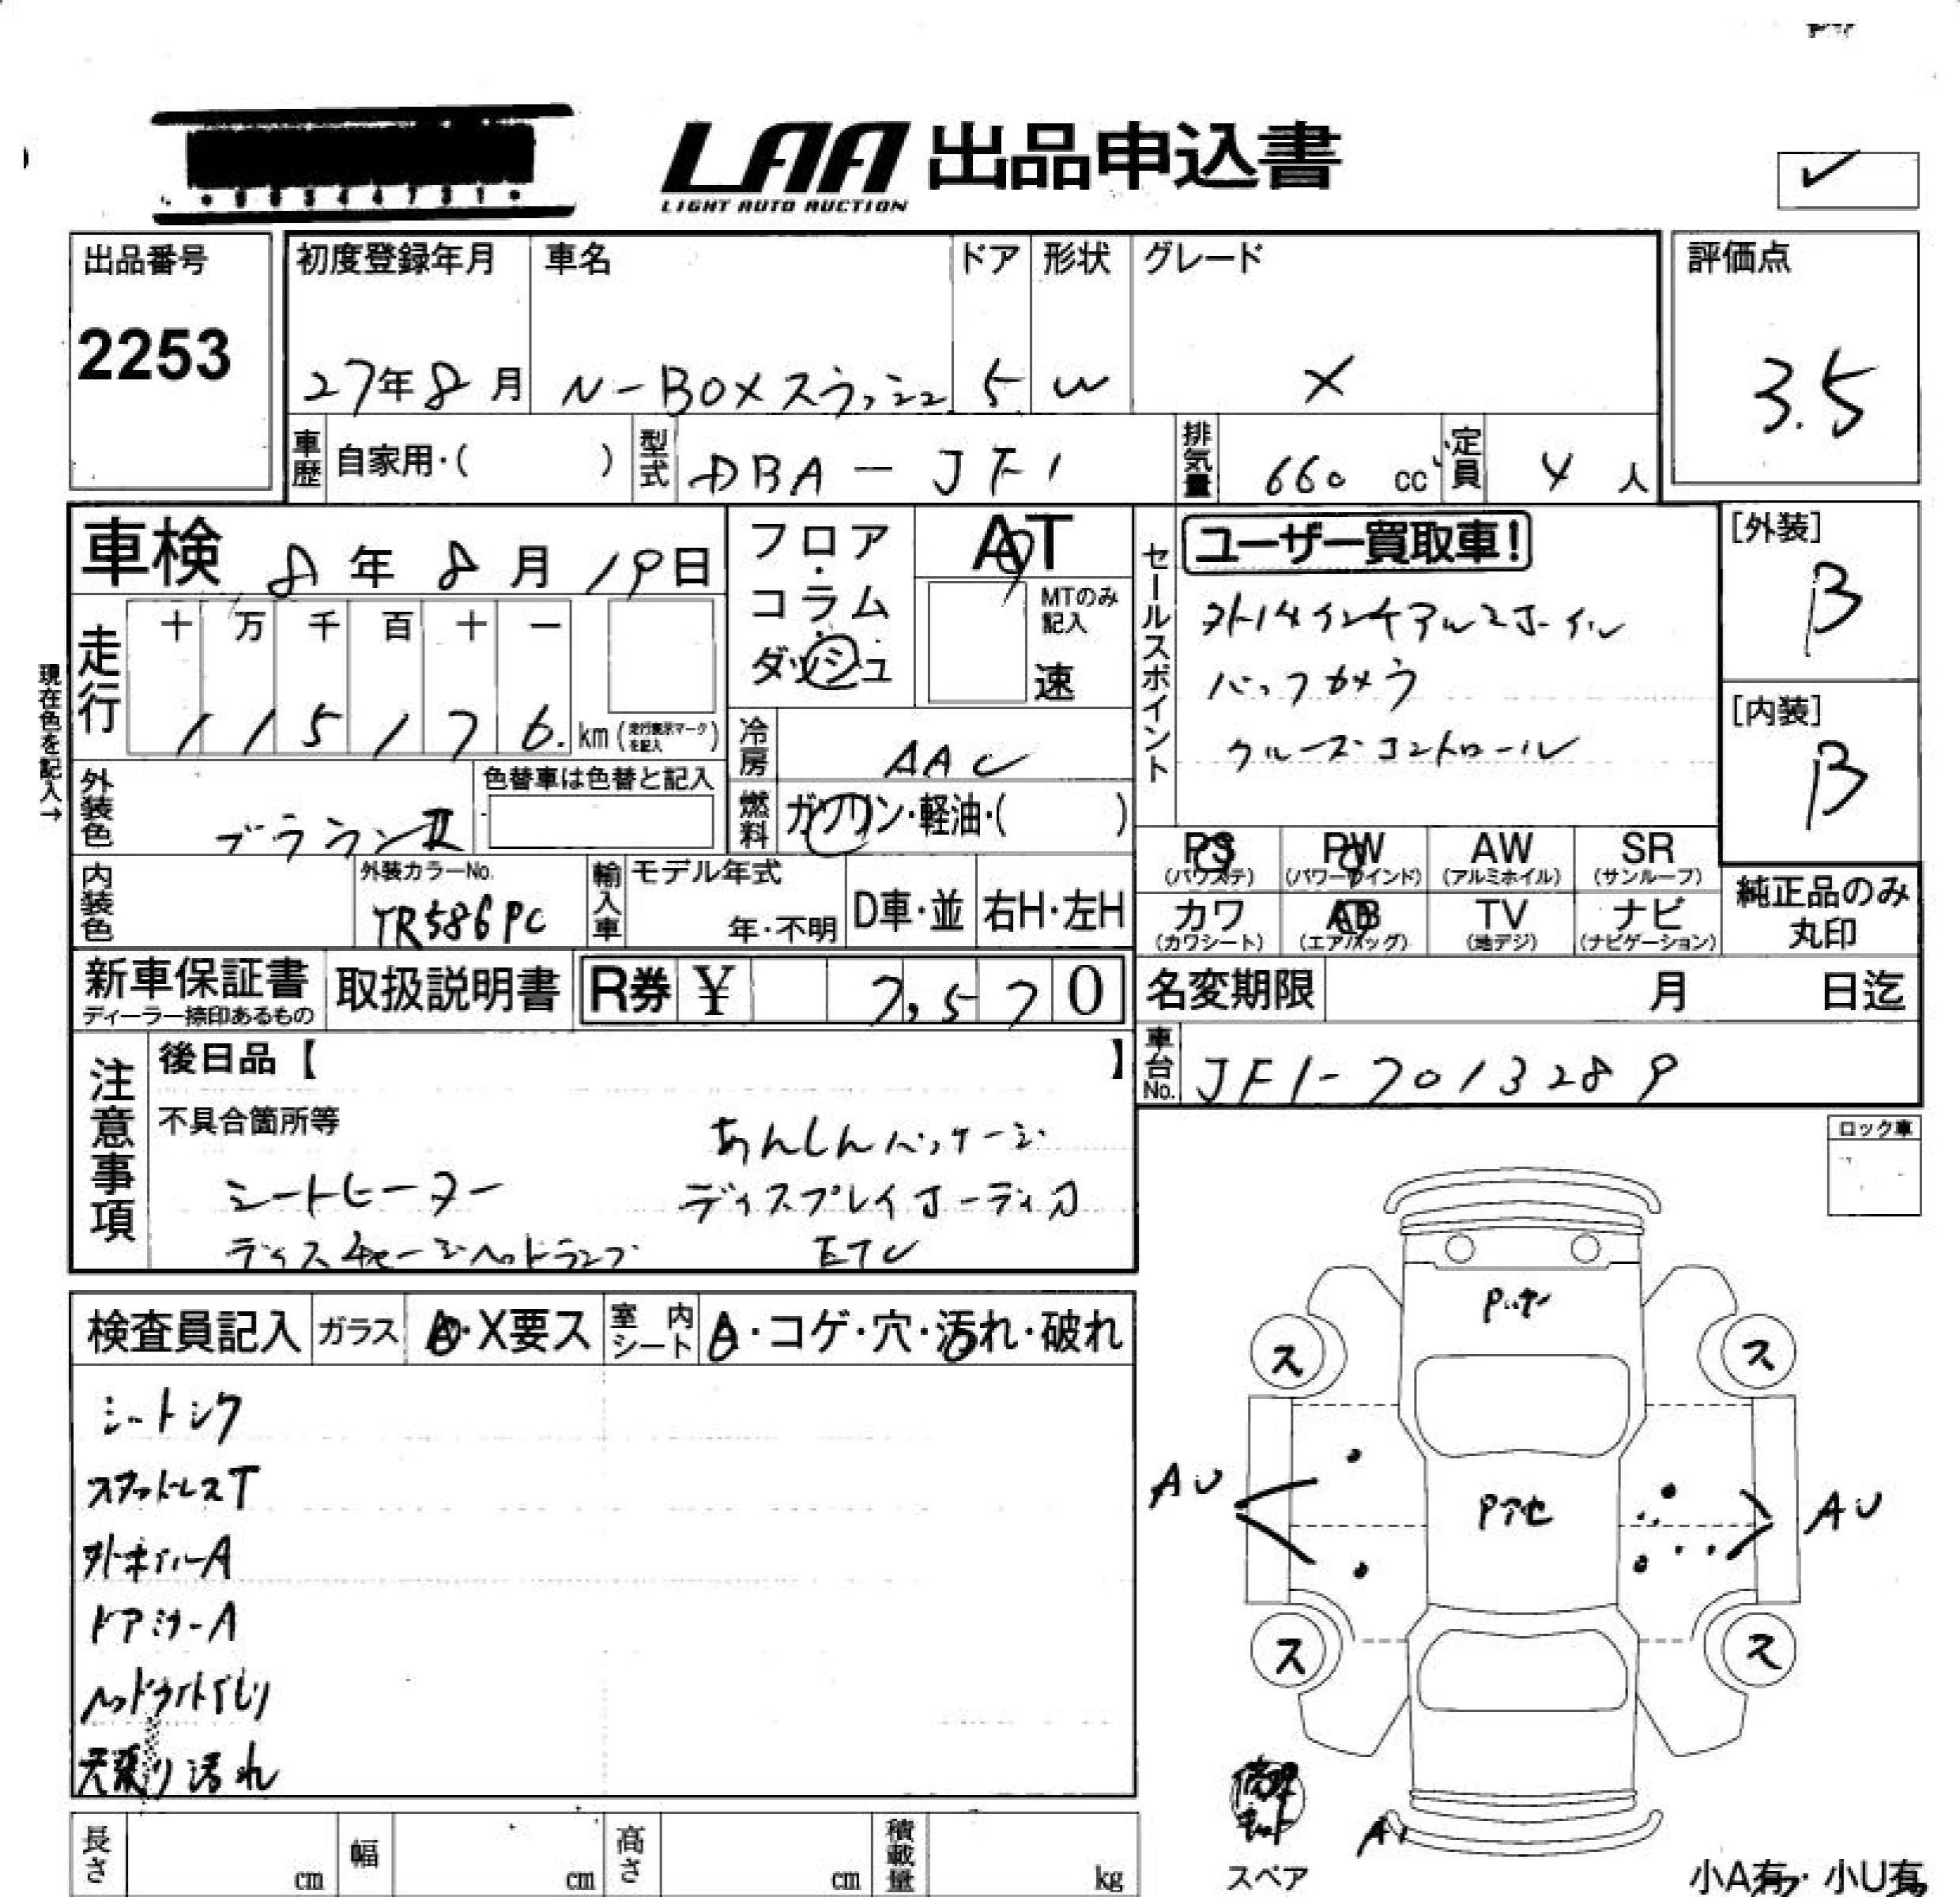 LAA 出品申込書
LIGHT AUTO AUCTION
✓
出品番号
2253
初度登録年月 車名 ドア 形状 グレード
27年8月 N-BOXスラッシュ 5 W X
評価点
3.5
車歴 自家用・( ) 型式 DBA-JF1 排気量 660 cc 定員 4 人
車検 8年 8月 19日
フロア・コラム・ダッシュ
AT
MTのみ記入
速
セールスポイント
ユーザー買取車!
外14インチアルミホイル
バックカメラ
クルーズコントロール
[外装]
B
[内装]
B
現在色を記入→
走行 十 万 千 百 十 一
1 1 5 1 7 6. km (走行表示マークを記入)
冷房 AAC
外装色 ブラウンII 色替車は色替と記入
燃料 ガソリン・軽油・( )
内装色 外装カラーNo. YR586PC
輸入車 モデル年式 年・不明 D車・並 右H・左H
PS (パワステ) PW (パワーウインド) AW (アルミホイル) SR (サンルーフ)
カワ (カワシート) AB (エアバッグ) TV (地デジ) ナビ (ナビゲーション)
純正品のみ丸印
新車保証書 ディーラー捺印あるもの 取扱説明書 R券 ¥ 7,570
名変期限 月 日迄
車台No. JF1-7013289
注意事項
後日品【 】
不具合箇所等
あんしんパッケージ
シートヒーター ディスプレイオーディオ
ディスチャージヘッドランプ ETC
ロック車
検査員記入 ガラス A・X要ス 室内シート A・コゲ・穴・汚れ・破れ
シートシワ
スタッドレスT
外ホイルーA
ドアミラーA
天張り汚れ
ス ス
AU Pアセ AU
ス ス
修理キット
スペア
A1
小A有・小U有
長さ cm 幅 cm 高さ cm 積載量 kg